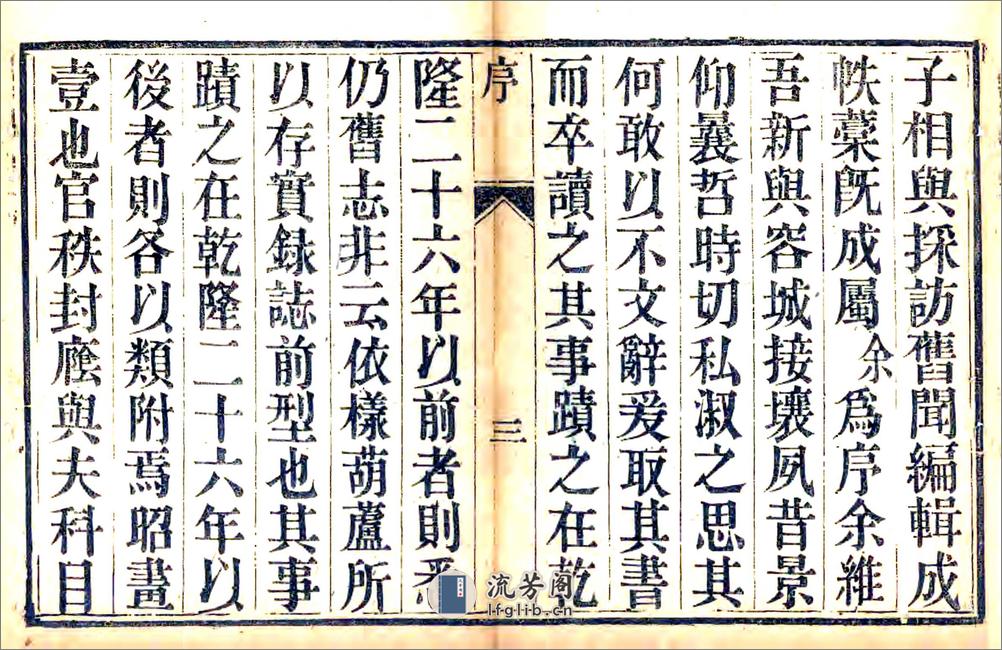 子相與採訪舊聞編輯成
帙藁旣成屬余爲序余維
吾新與容城接壤夙昔景
仰曩哲時切私淑之思其
何敢以不文辭爰取其書
而卒讀之其事蹟之在乾
序
三
隆二十六年以前者則悉
仍舊志非云依樣葫蘆所
以存實錄誌前型也其事
蹟之在乾隆二十六年以
後者則各以類附焉昭畫
壹也官秩封廕與夫科目
流芳阁
lfglib.cn